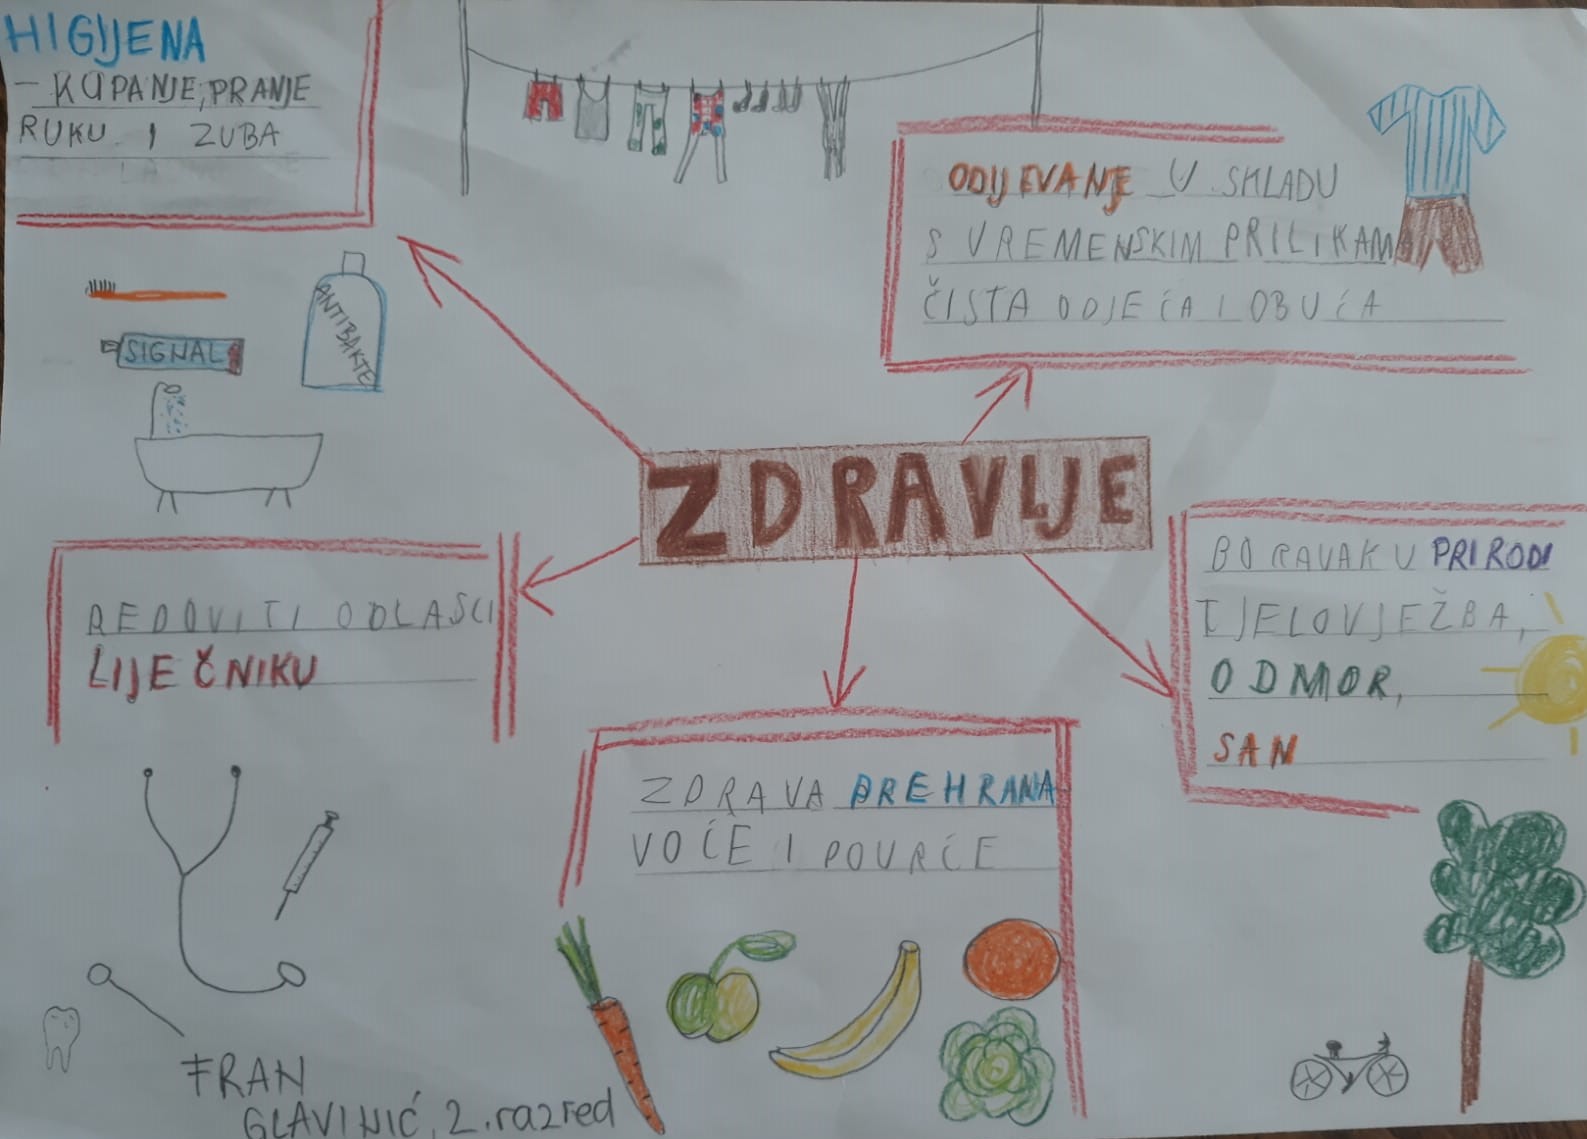 HIGIJENA
- KUPANJE, PRANJE
RUKU I ZUBA
ANTIBAKTE
SIGNAL
ODIJEVANJE U SKLADU
S VREMENSKIM PRILIKAMA
ČISTA ODJEĆA I OBUĆA
ZDRAVLJE
REDOVITI ODLASCI
LIJEČNIKU
BORAVAK U PRIRODI
TJELOVJEŽBA,
ODMOR,
SAN
ZDRAVA PREHRANA
VOĆE I POVRĆE
FRAN
GLAVINIĆ, 2. razred